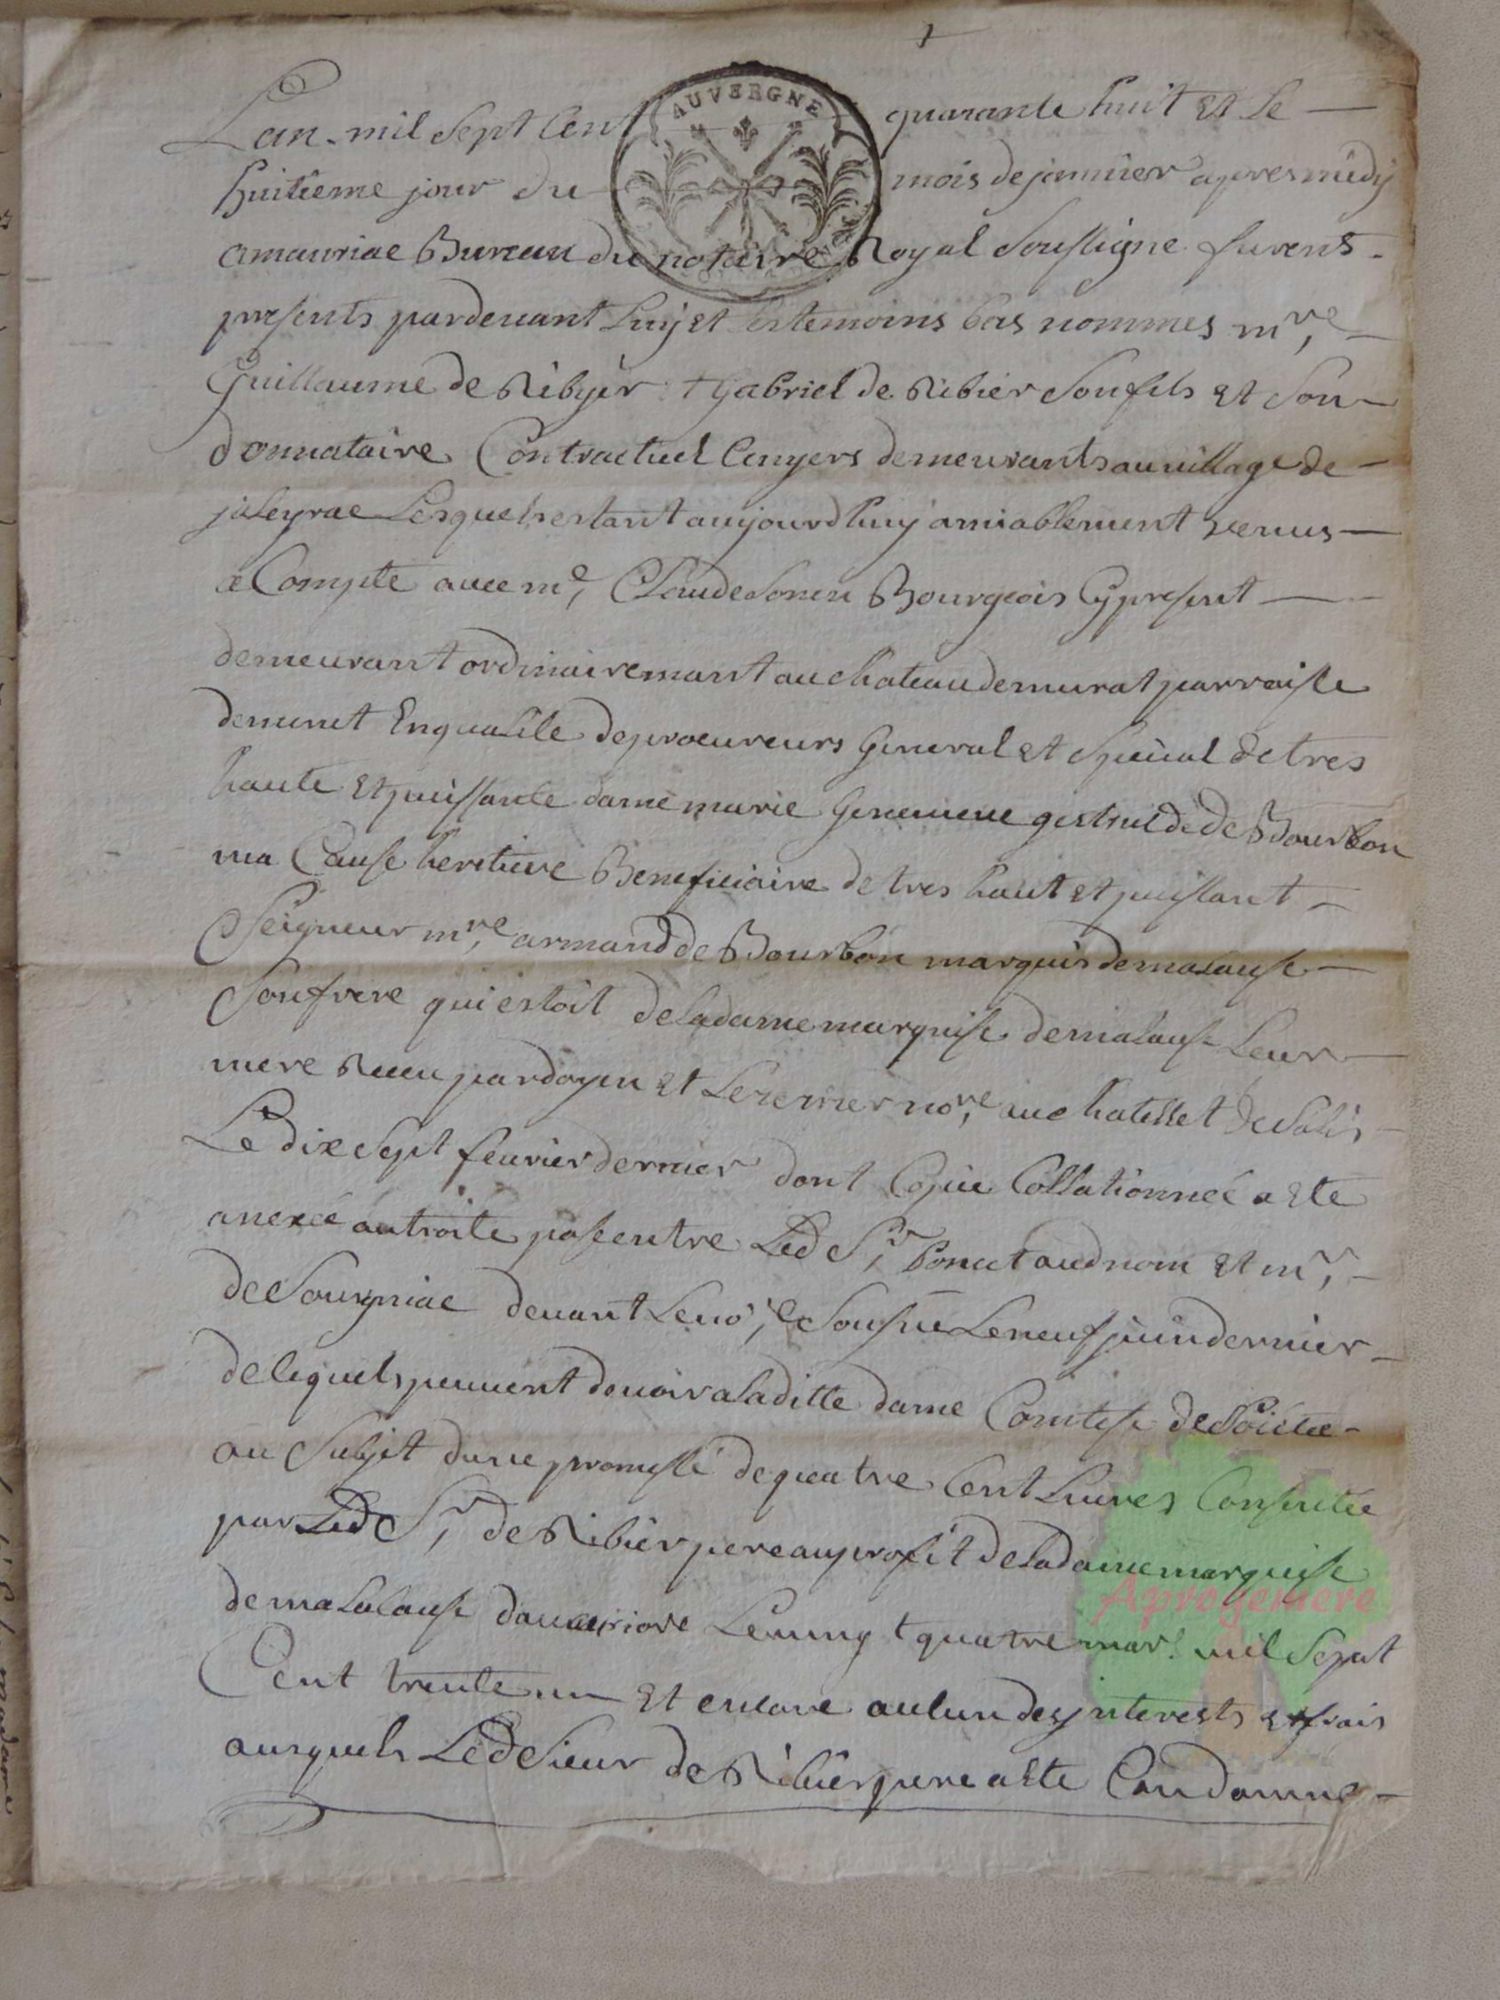 AUVERGNE
Lan mil sept Cent quarante huit et le
huitieme jour du mois de janvier apres midy
a mauriac Bureau du notaire Royal soussigne furent
presents pardevant luy et les temoins bas nommes mre
Guillaume de Ribyer + gabriel de Ribier son fils et son
donnataire Contractuel Ecuyers demeurants au village de
jaleyrac Lesquels estant aujourdhuy amiablement venus
a Compte avec me Claude Bourgeois Cy present
demeurant ordinairemant au chateau de murat parroisse
de En qualite de procureurs General et special de tres
haute et puissante dame marie Genevieve gertrude de Bourbon
ma Cause heritiere Beneficiaire de tres haut et puissant
Seigneur mre armand de Bourbon marquis de malause
son frere qui estoit de la dame marquise de malause Leur
mere Receu par doyen et nore au chatellet de
Le dix sept fevrier dernier dont Copie Collationnee a Ete
anexée au traite passe entre Led Sr Poncet aud nom et mr
de Sourniac devant le nore le neuf juin dernier
de lequels peuvent devoir a la ditte dame Comtesse de
au Subjet dune promesse de quatre Cent Livres Consentie
par Led Sr de Ribier pere au profit de la dame marquise
de malause Le vingt quatre mars mil Sept
Cent trente un et encore aucun des jnterests et frais
ausquels Led Sieur de Ribier pere a Ete Condamne
Aprogemere